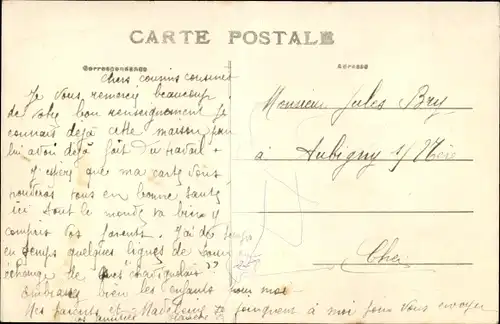 CARTE POSTALE
Correspondance
Adresse
Chers cousins cousines
Je vous remercie beaucoup
de votre bon renseignement je
connais déjà cette maison pour
lui avoir déjà fait du travail
J'espère que ma carte vous
trouvera tous en bonne santé
ici tout le monde va bien y
compris vos parents. J'ai de temps
en temps quelques lignes de
échange de
Embrassez bien les enfants pour moi
Mes parents et Madeleine se joignent à moi pour vous envoyer
Monsieur Jules Bry
à Aubigny s/ Nère
Cher